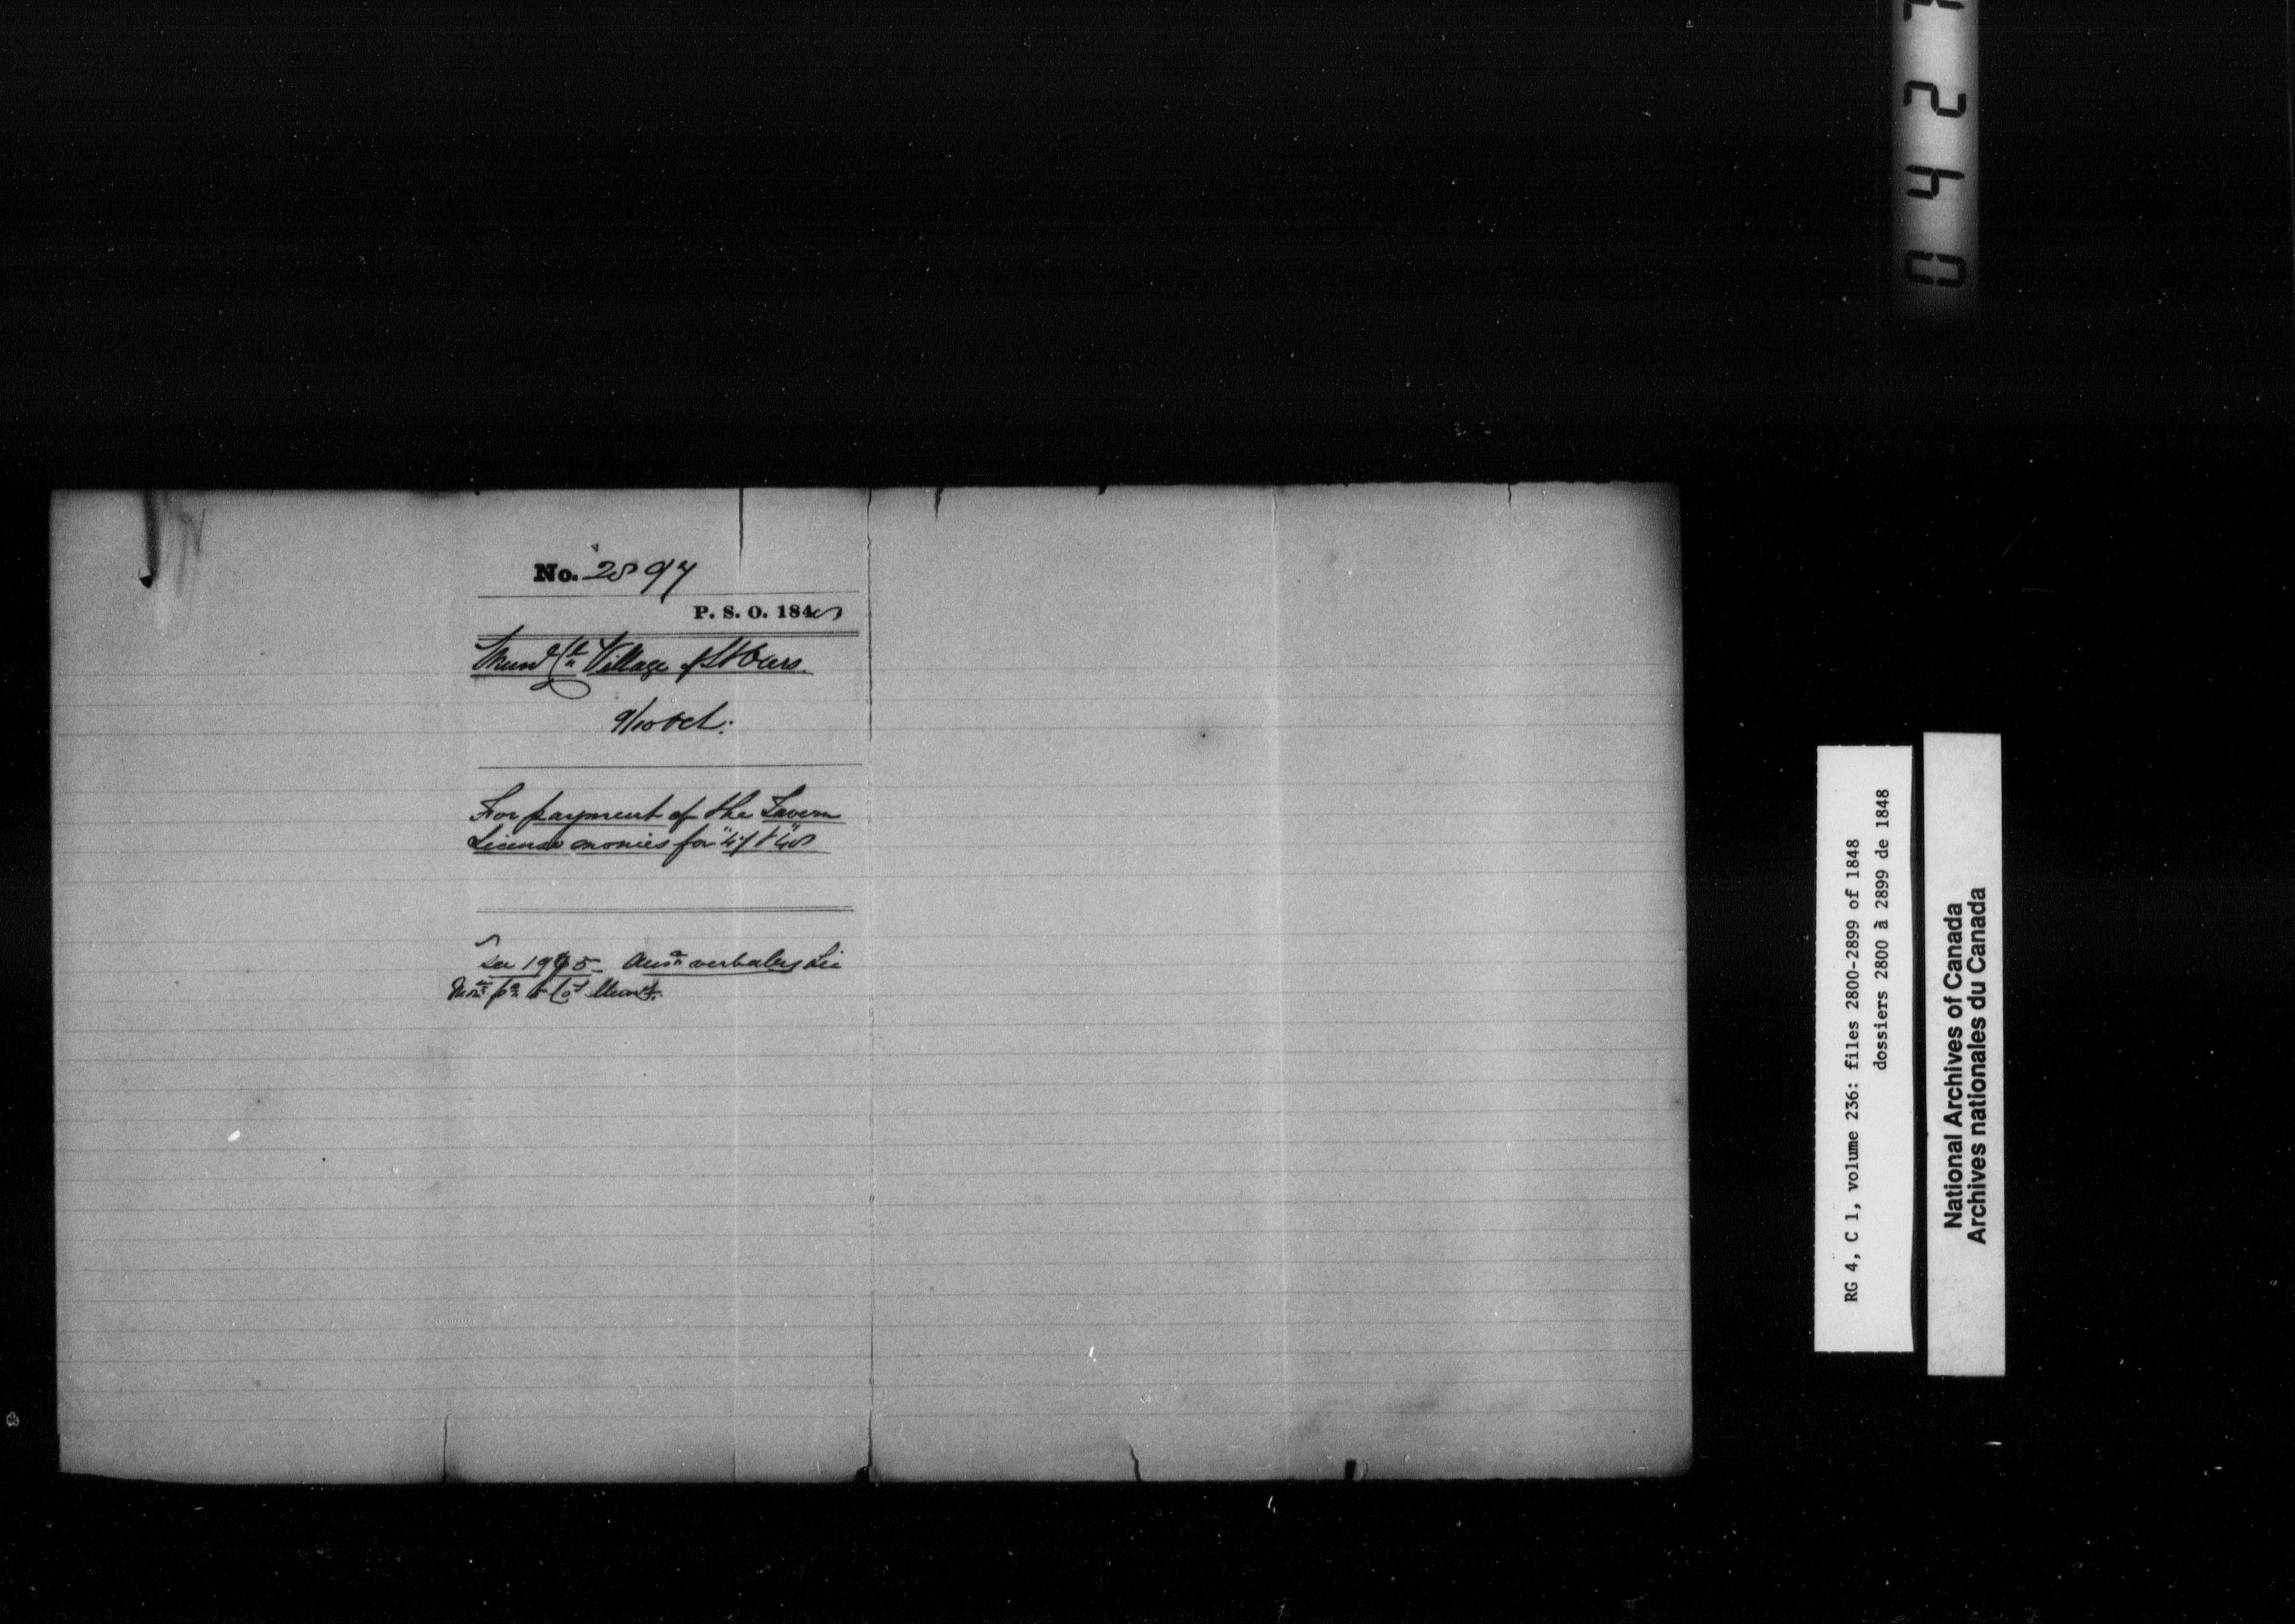 No. 2897
P. S. O. 1848
Mun^l C^l Village of St Ours.
9/10 Oct:
For payment of the Tavern
License monies for "47 & "48
See 1995 - Ans^d verbally Lic
to Mun^t.
0 4 2 7
RG 4, C 1, volume 236: files 2800-2899 of 1848
dossiers 2800 à 2899 de 1848
National Archives of Canada
Archives nationales du Canada